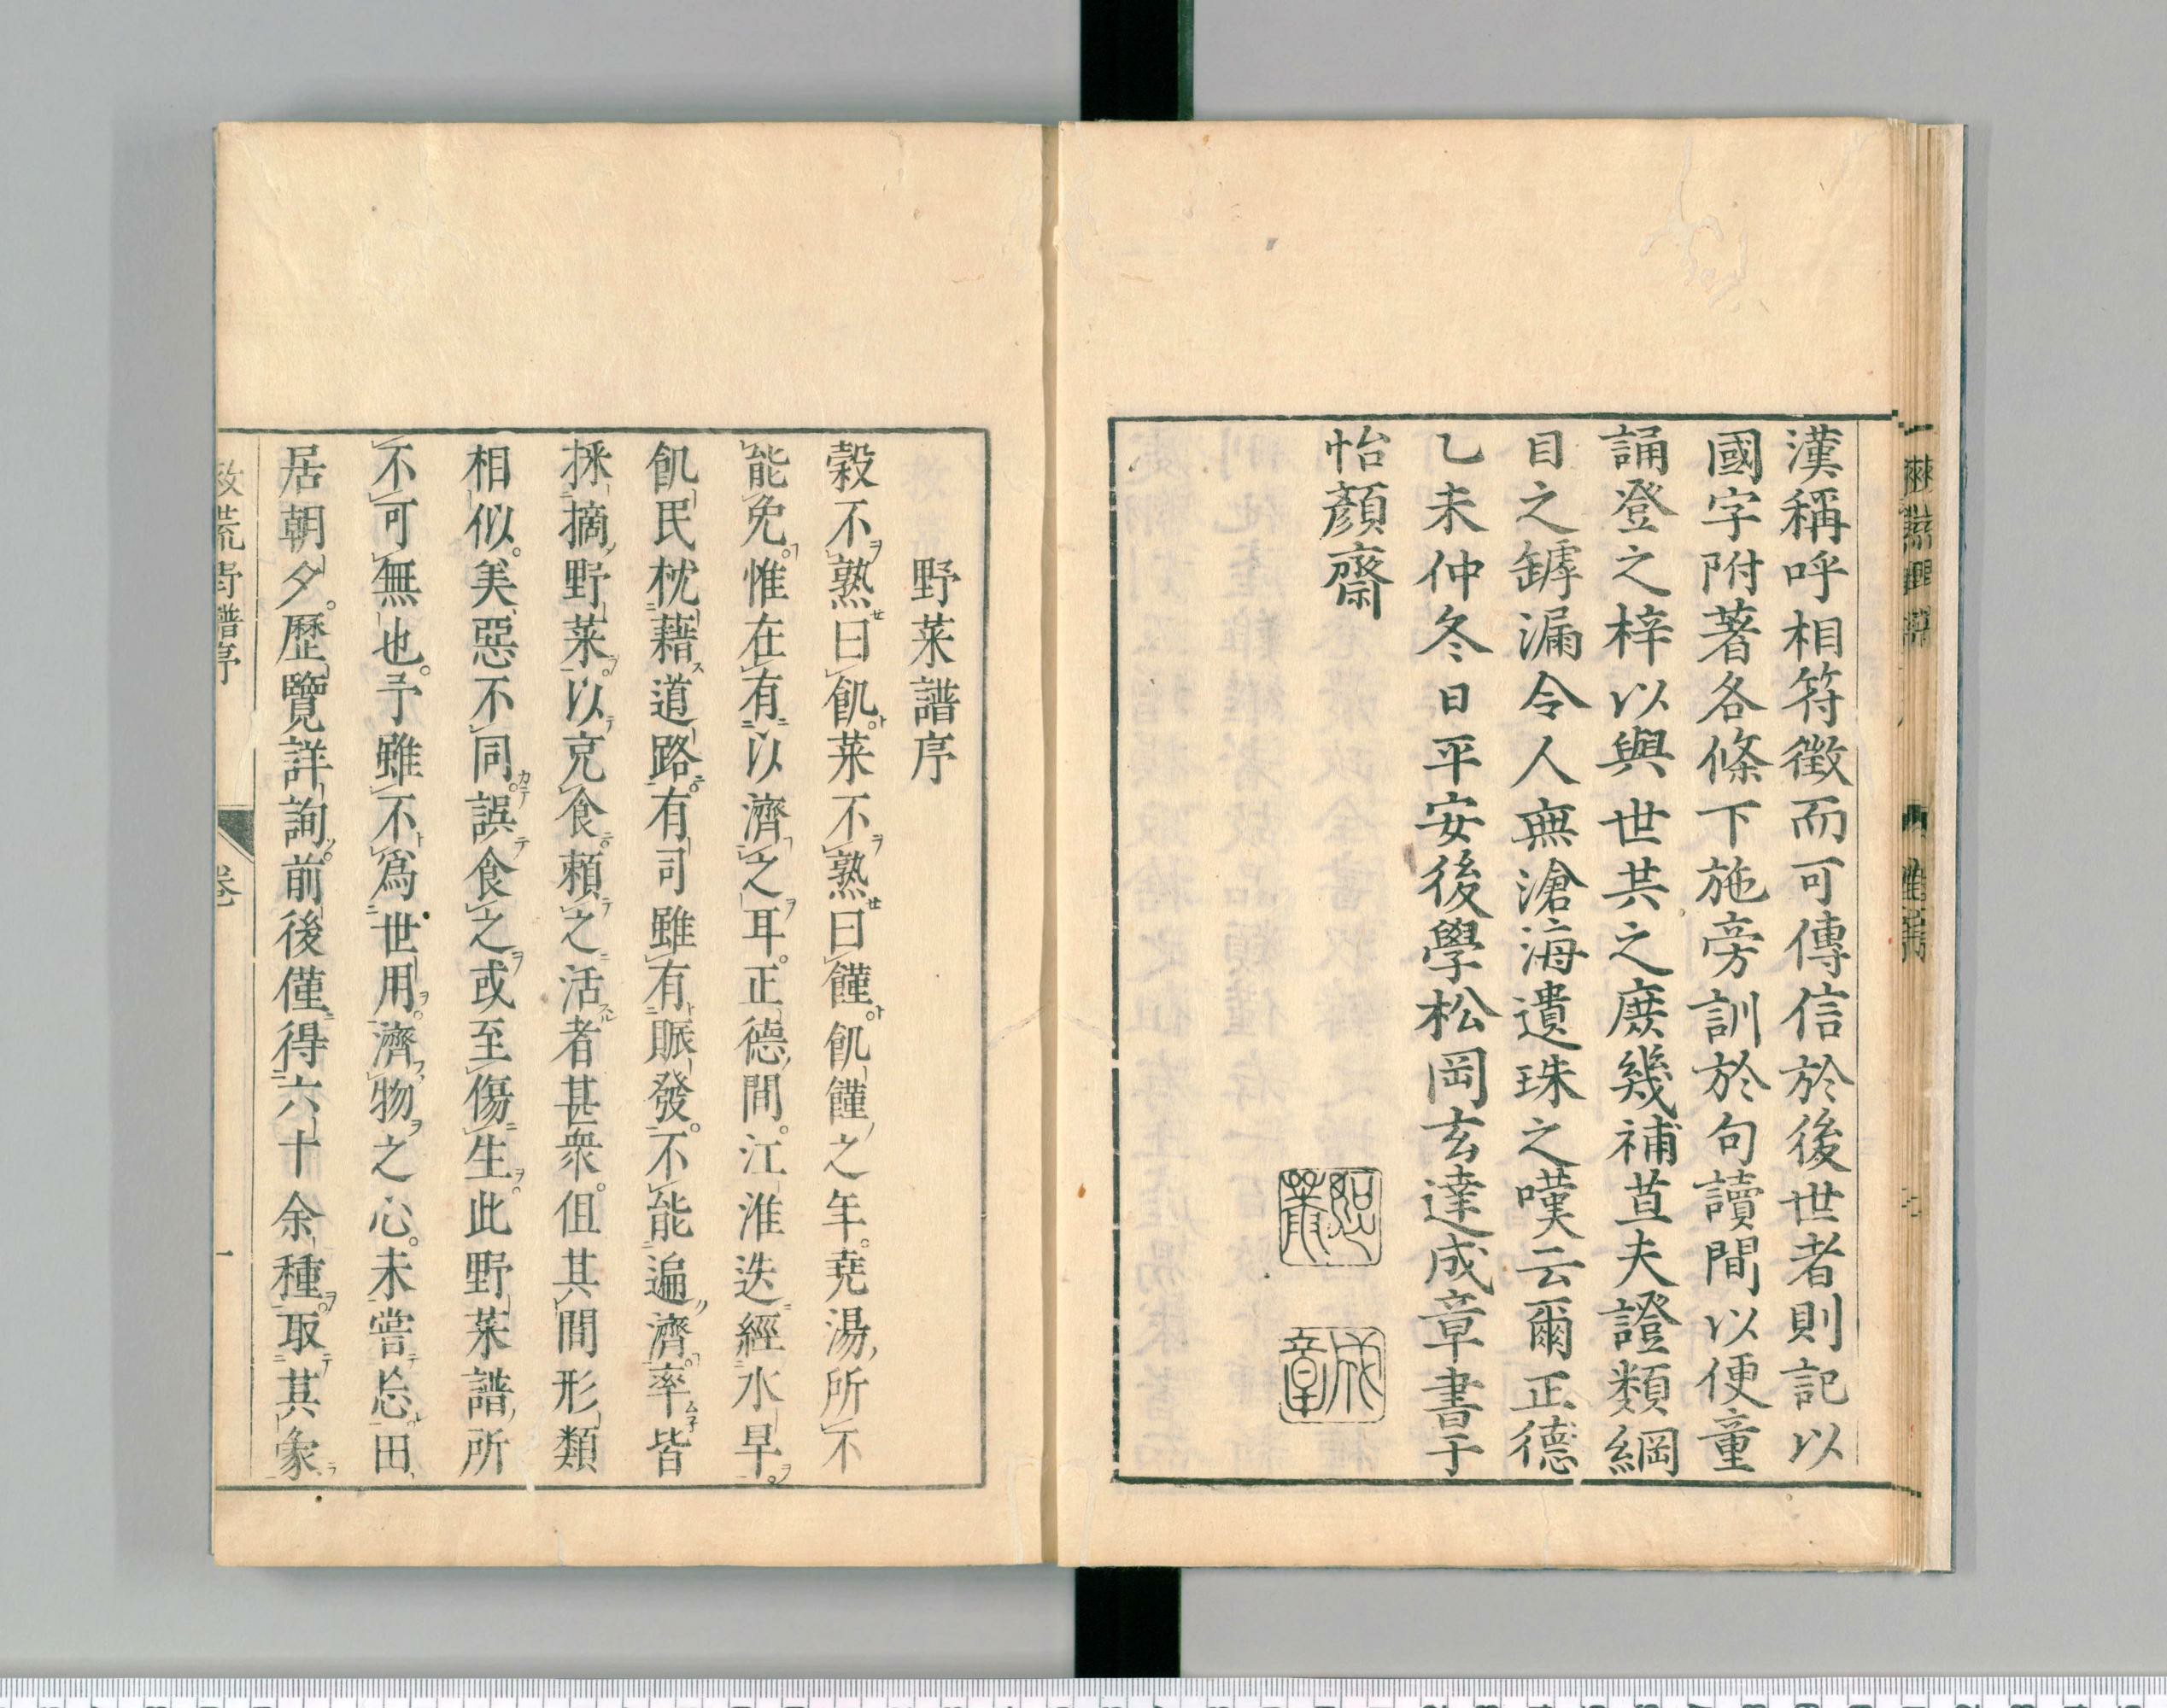 漢稱呼相符徵而可傳信於後世者則記以
國字附著各條下施旁訓於句讀間以便童
誦登之梓以與世共之庶幾補苴夫證類綱
目之罅漏令人無滄海遺珠之嘆云爾正德
乙未仲冬日平安後學松岡玄達成章書于
怡顏齋
成章
野菜譜序
穀不熟曰飢菜不熟曰饉飢饉之年堯湯所不
能免惟在有以濟之耳正德間江淮迭經水旱
飢民枕藉道路有司雖有賑發不能遍濟率皆
採摘野菜以充食賴之活者甚衆但其間形類
相似美惡不同誤食之或至傷生此野菜譜所
不可無也予雖不為世用濟物之心未嘗忘田
居朝夕歷覽詳詢前後僅得六十余種取其象
救荒野譜序
卷
一